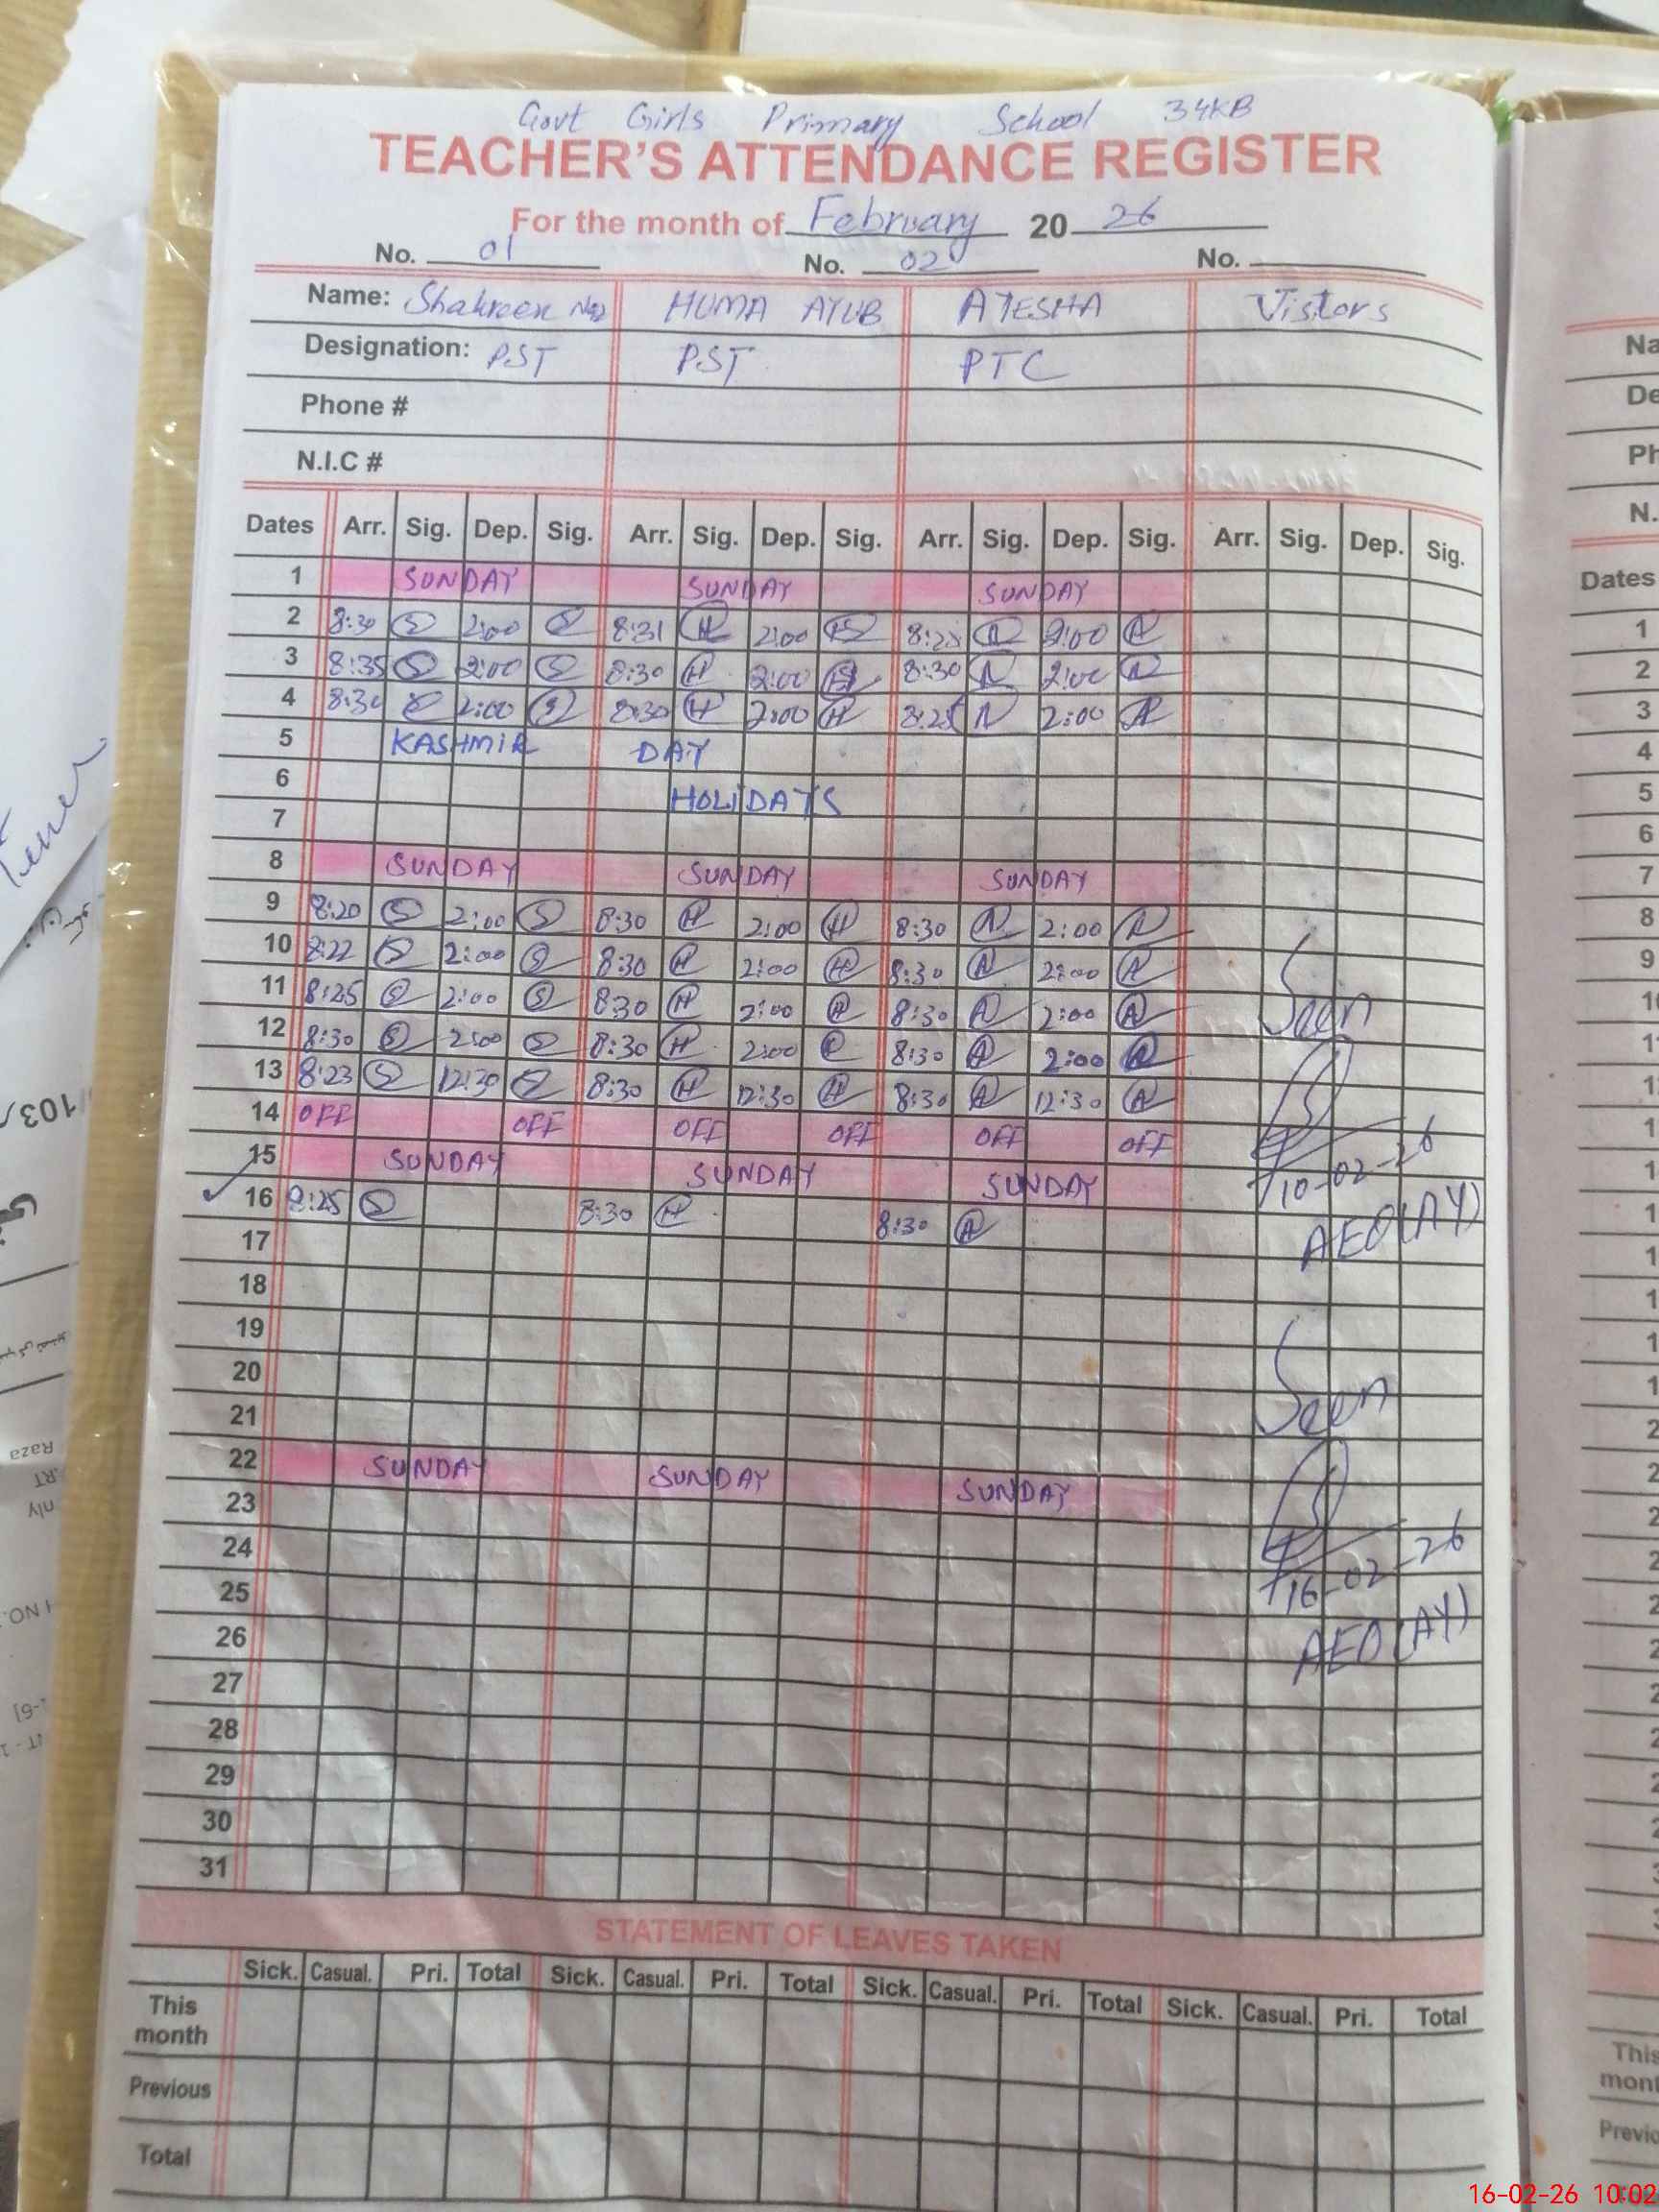 Govt Girls Primary School 34KB
TEACHER'S ATTENDANCE REGISTER
For the month of February 20 26
No. 01 No. 02 No.
Name: Shahreen Naz HUMA AYUB AYESHA Visitors
Designation: PST PST PTC
Phone #
N.I.C #
Dates Arr. Sig. Dep. Sig. Arr. Sig. Dep. Sig. Arr. Sig. Dep. Sig. Arr. Sig. Dep. Sig.
1 SUNDAY SUNDAY SUNDAY
2 8:30 S 2:00 S 8:31 H 2:00 8:25 A 2:00 A
3 8:35 S 2:00 S 8:30 H 2:00 8:30 A 2:00 A
4 8:30 S 2:00 S 8:30 H 2:00 H 8:25 A 2:00 A
5 KASHMIR DAY
6 HOLIDAYS
7
8 SUNDAY SUNDAY SUNDAY
9 8:20 S 2:00 S 8:30 H 2:00 H 8:30 A 2:00 A
10 8:22 S 2:00 S 8:30 H 2:00 H 8:30 A 2:00 A
11 8:25 S 2:00 S 8:30 H 2:00 H 8:30 A 2:00 A
Seen
12 8:30 S 2:00 S 8:30 H 2:00 8:30 A 2:00 A
13 8:23 S 12:30 S 8:30 H 12:30 H 8:30 A 12:30 A
14 OFF OFF OFF OFF OFF OFF
15 SUNDAY SUNDAY SUNDAY
10-02-26
16 8:25 S 8:30 H 8:30 A
AEO(AY)
17
18
19
20
Seen
21
22 SUNDAY SUNDAY SUNDAY
23
24
16-02-26
25
26
AEO(AY)
27
28
29
30
31
STATEMENT OF LEAVES TAKEN
Sick. Casual. Pri. Total Sick. Casual. Pri. Total Sick. Casual. Pri. Total Sick. Casual. Pri. Total
This month
Previous
Total
16-02-26 10:02